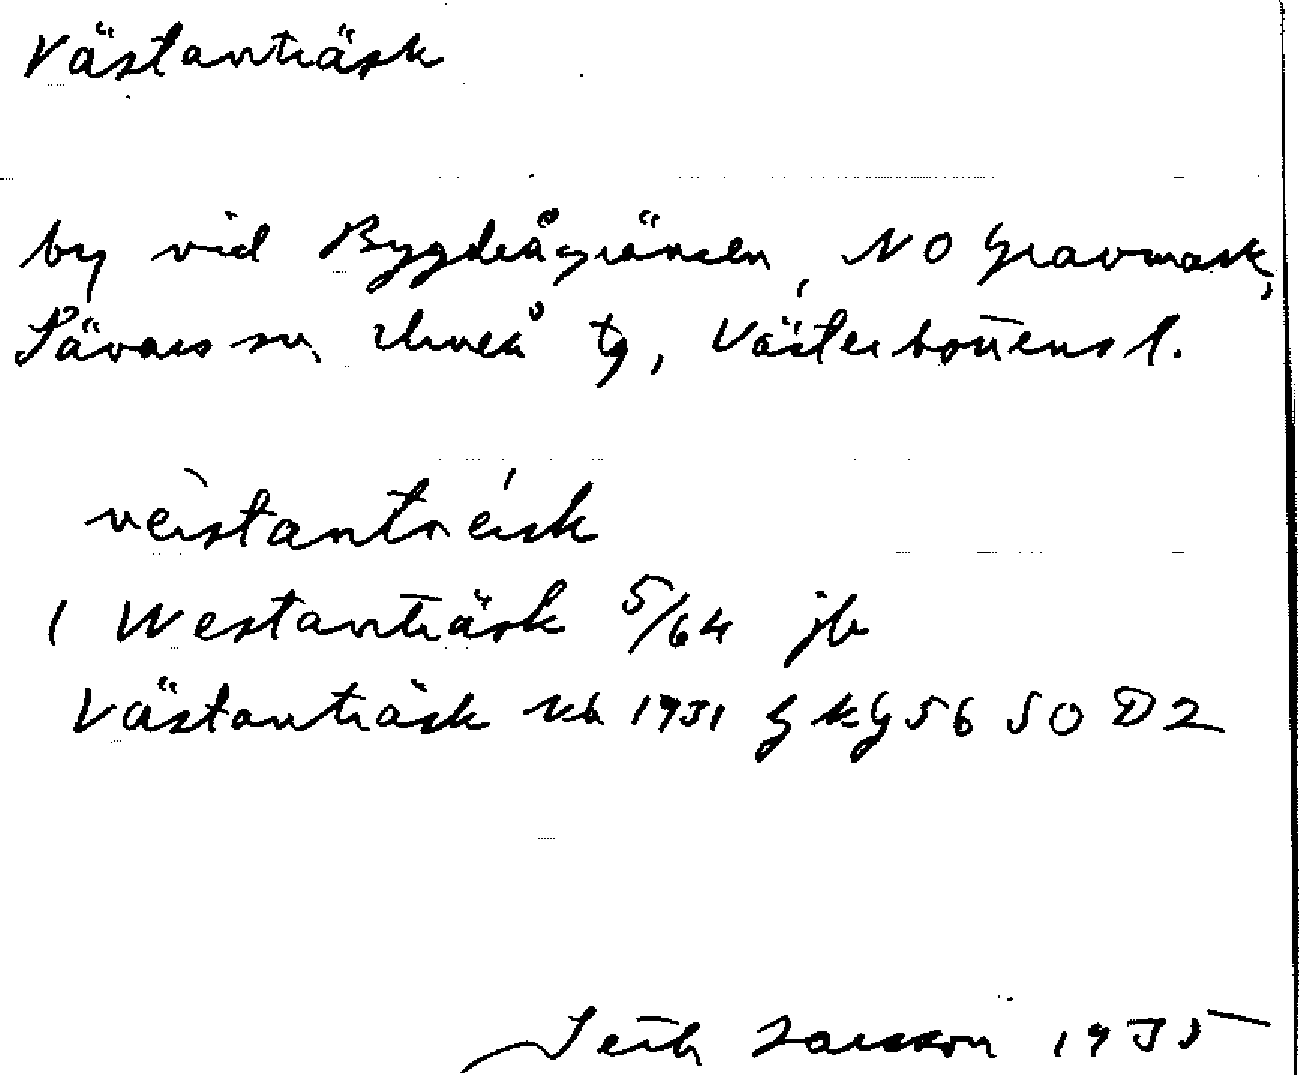 Västanträsk
by vid Bygdeågränsen, NO Gravmark,
Sävars sn, Umeå tg, Västerbottens l.
vèistantréisk
( Westanträsk 5/64 jb
Västanträsk kb 1951 GKG 56 SO D2
Seth Larsson 1955